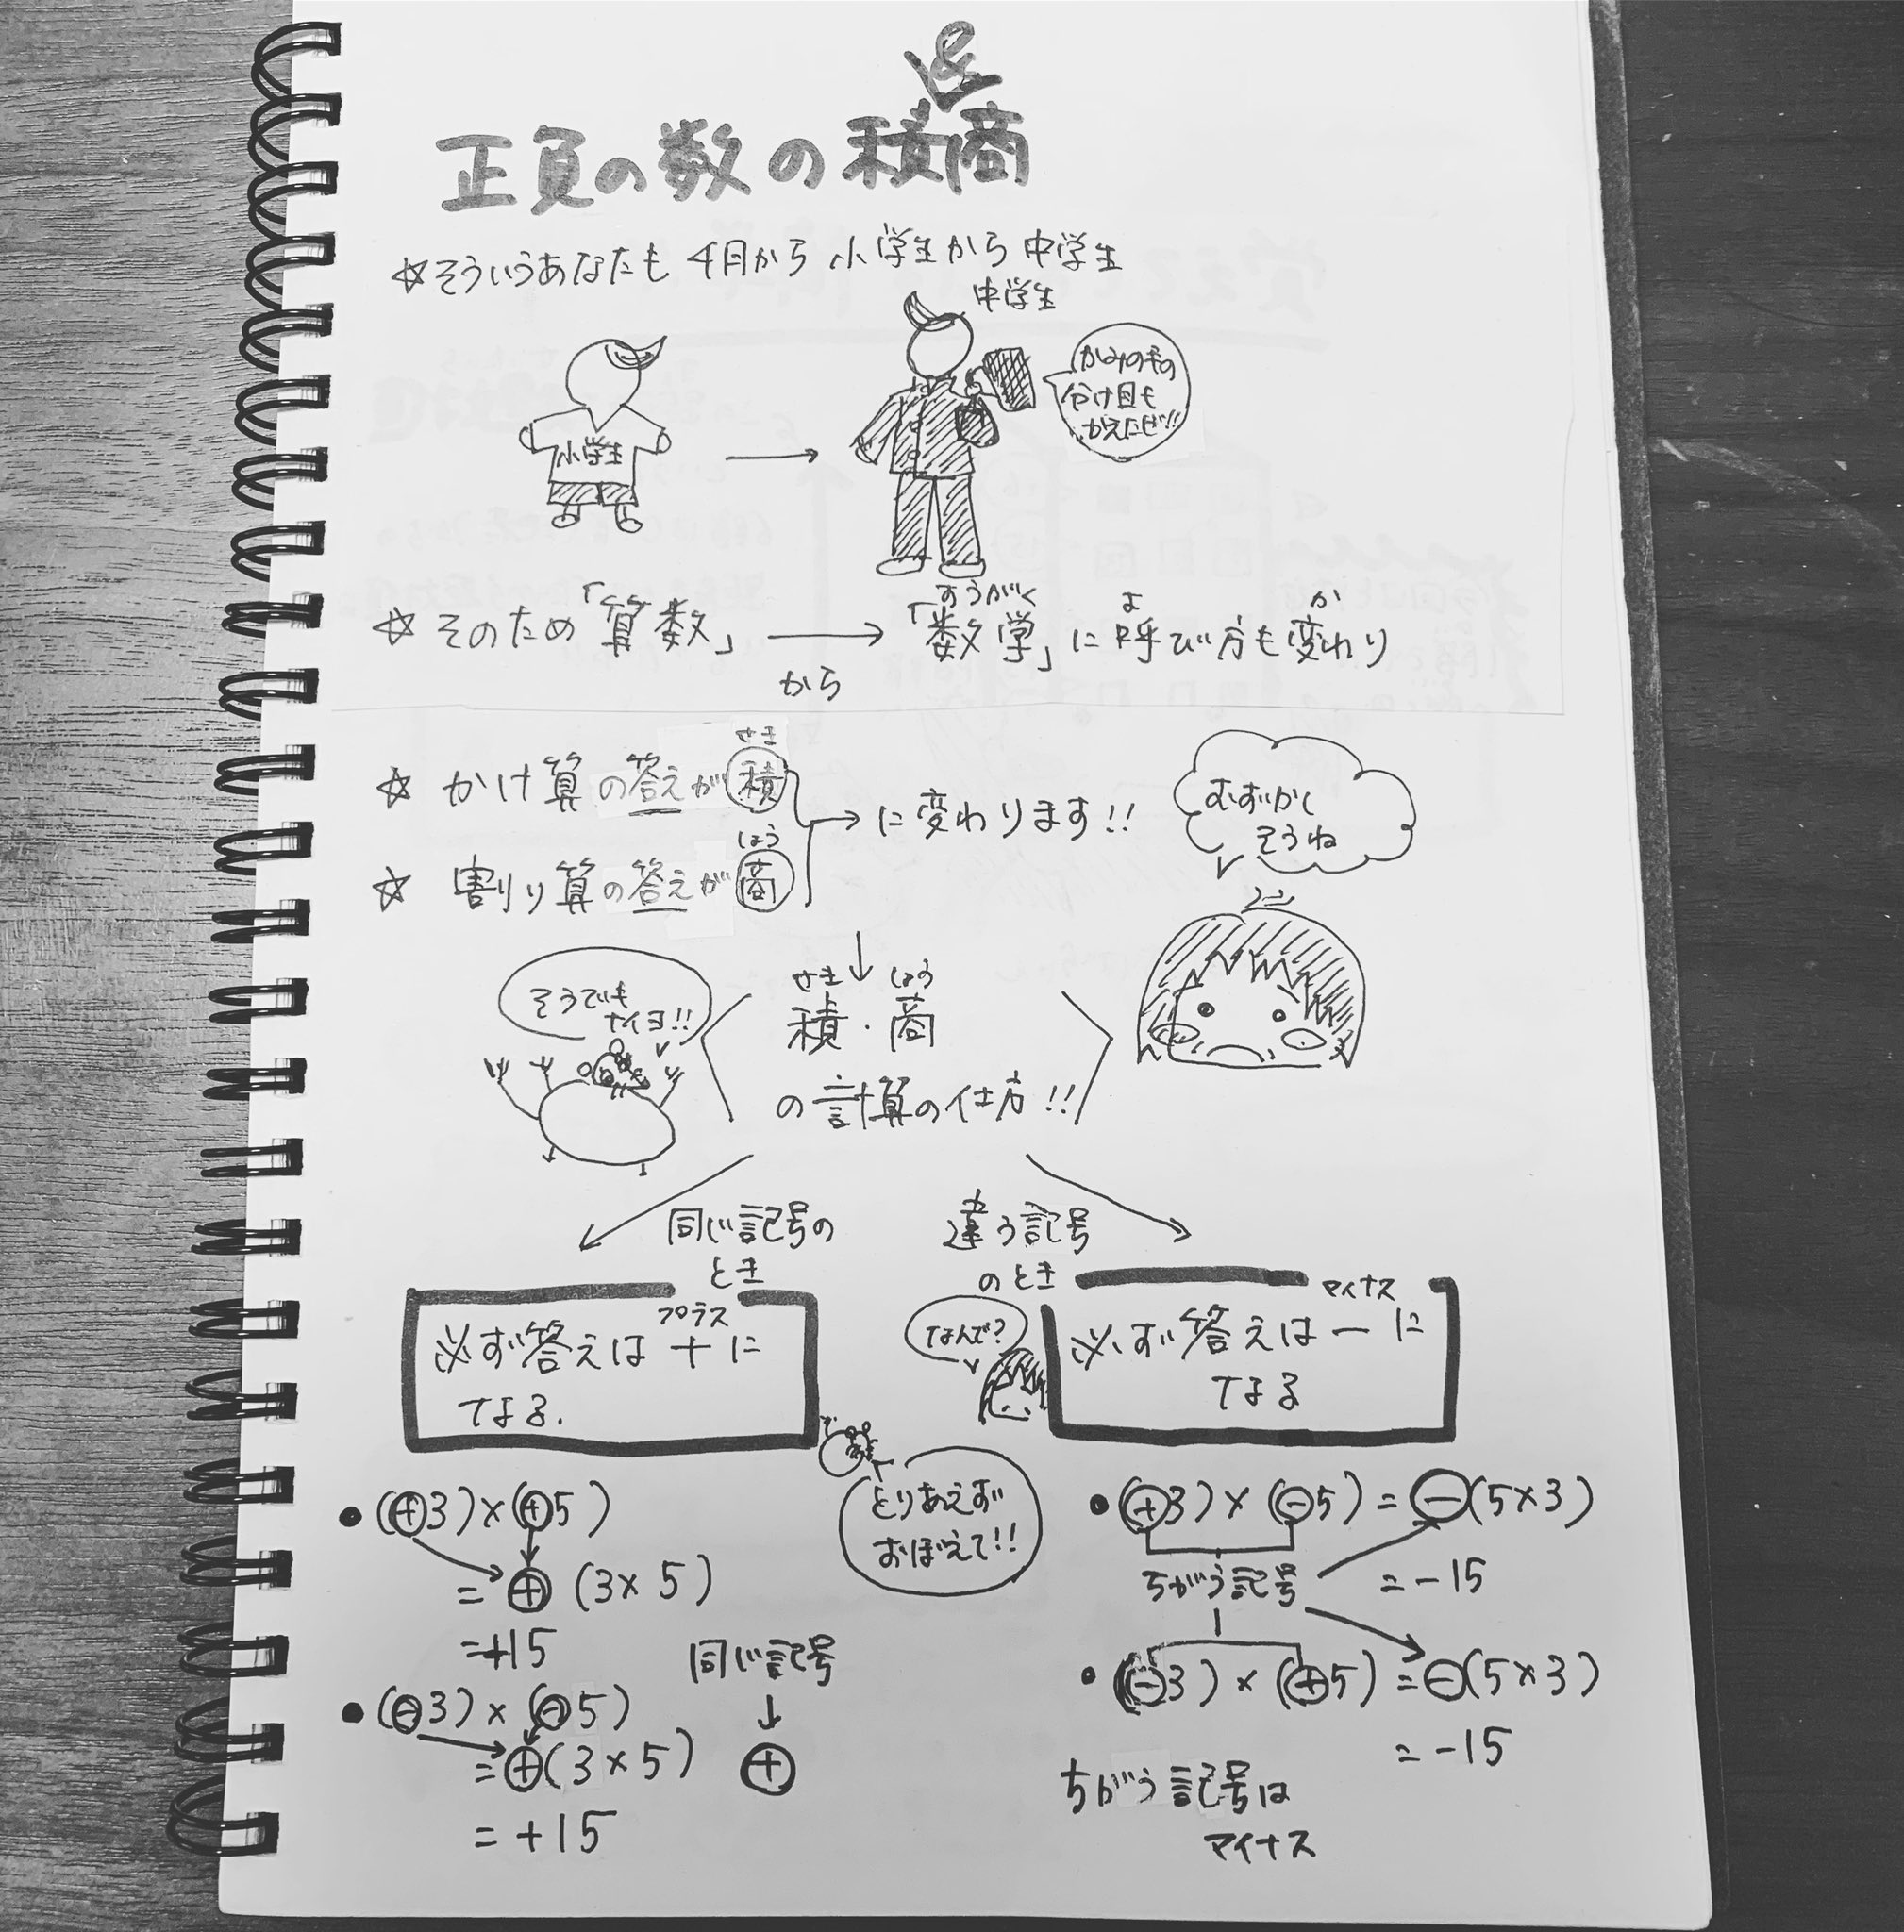 &
正負の数の積商
☆そういうあなたも 4月から 小学生から 中学生
中学生
かみの毛の
分け目も
かえたぜ!!
小学生
すうがく よ か
☆そのため「算数」→「数学」に呼び方も変わり
から
せき
☆ かけ算の答えが積
→に変わります!!
しょう
☆ 割り算の答えが商
むずかし
そうね
そうでも
ナイヨ!!
↓
せき しょう
積・商
の計算の仕方!!
同じ記号の
とき
違う記号
のとき
プラス
必ず答えは + に
なる.
なんで?
マイナス
必ず答えは ー に
なる
とりあえず
おぼえて!!
• (+3)×(+5)
= + (3×5)
=+15
同じ記号
↓
+
• (-3)×(-5)
=+(3×5)
= +15
• (+3)×(-5) = -(5×3)
ちがう記号
= -15
• (-3)×(+5) = -(5×3)
= -15
ちがう記号は
マイナス